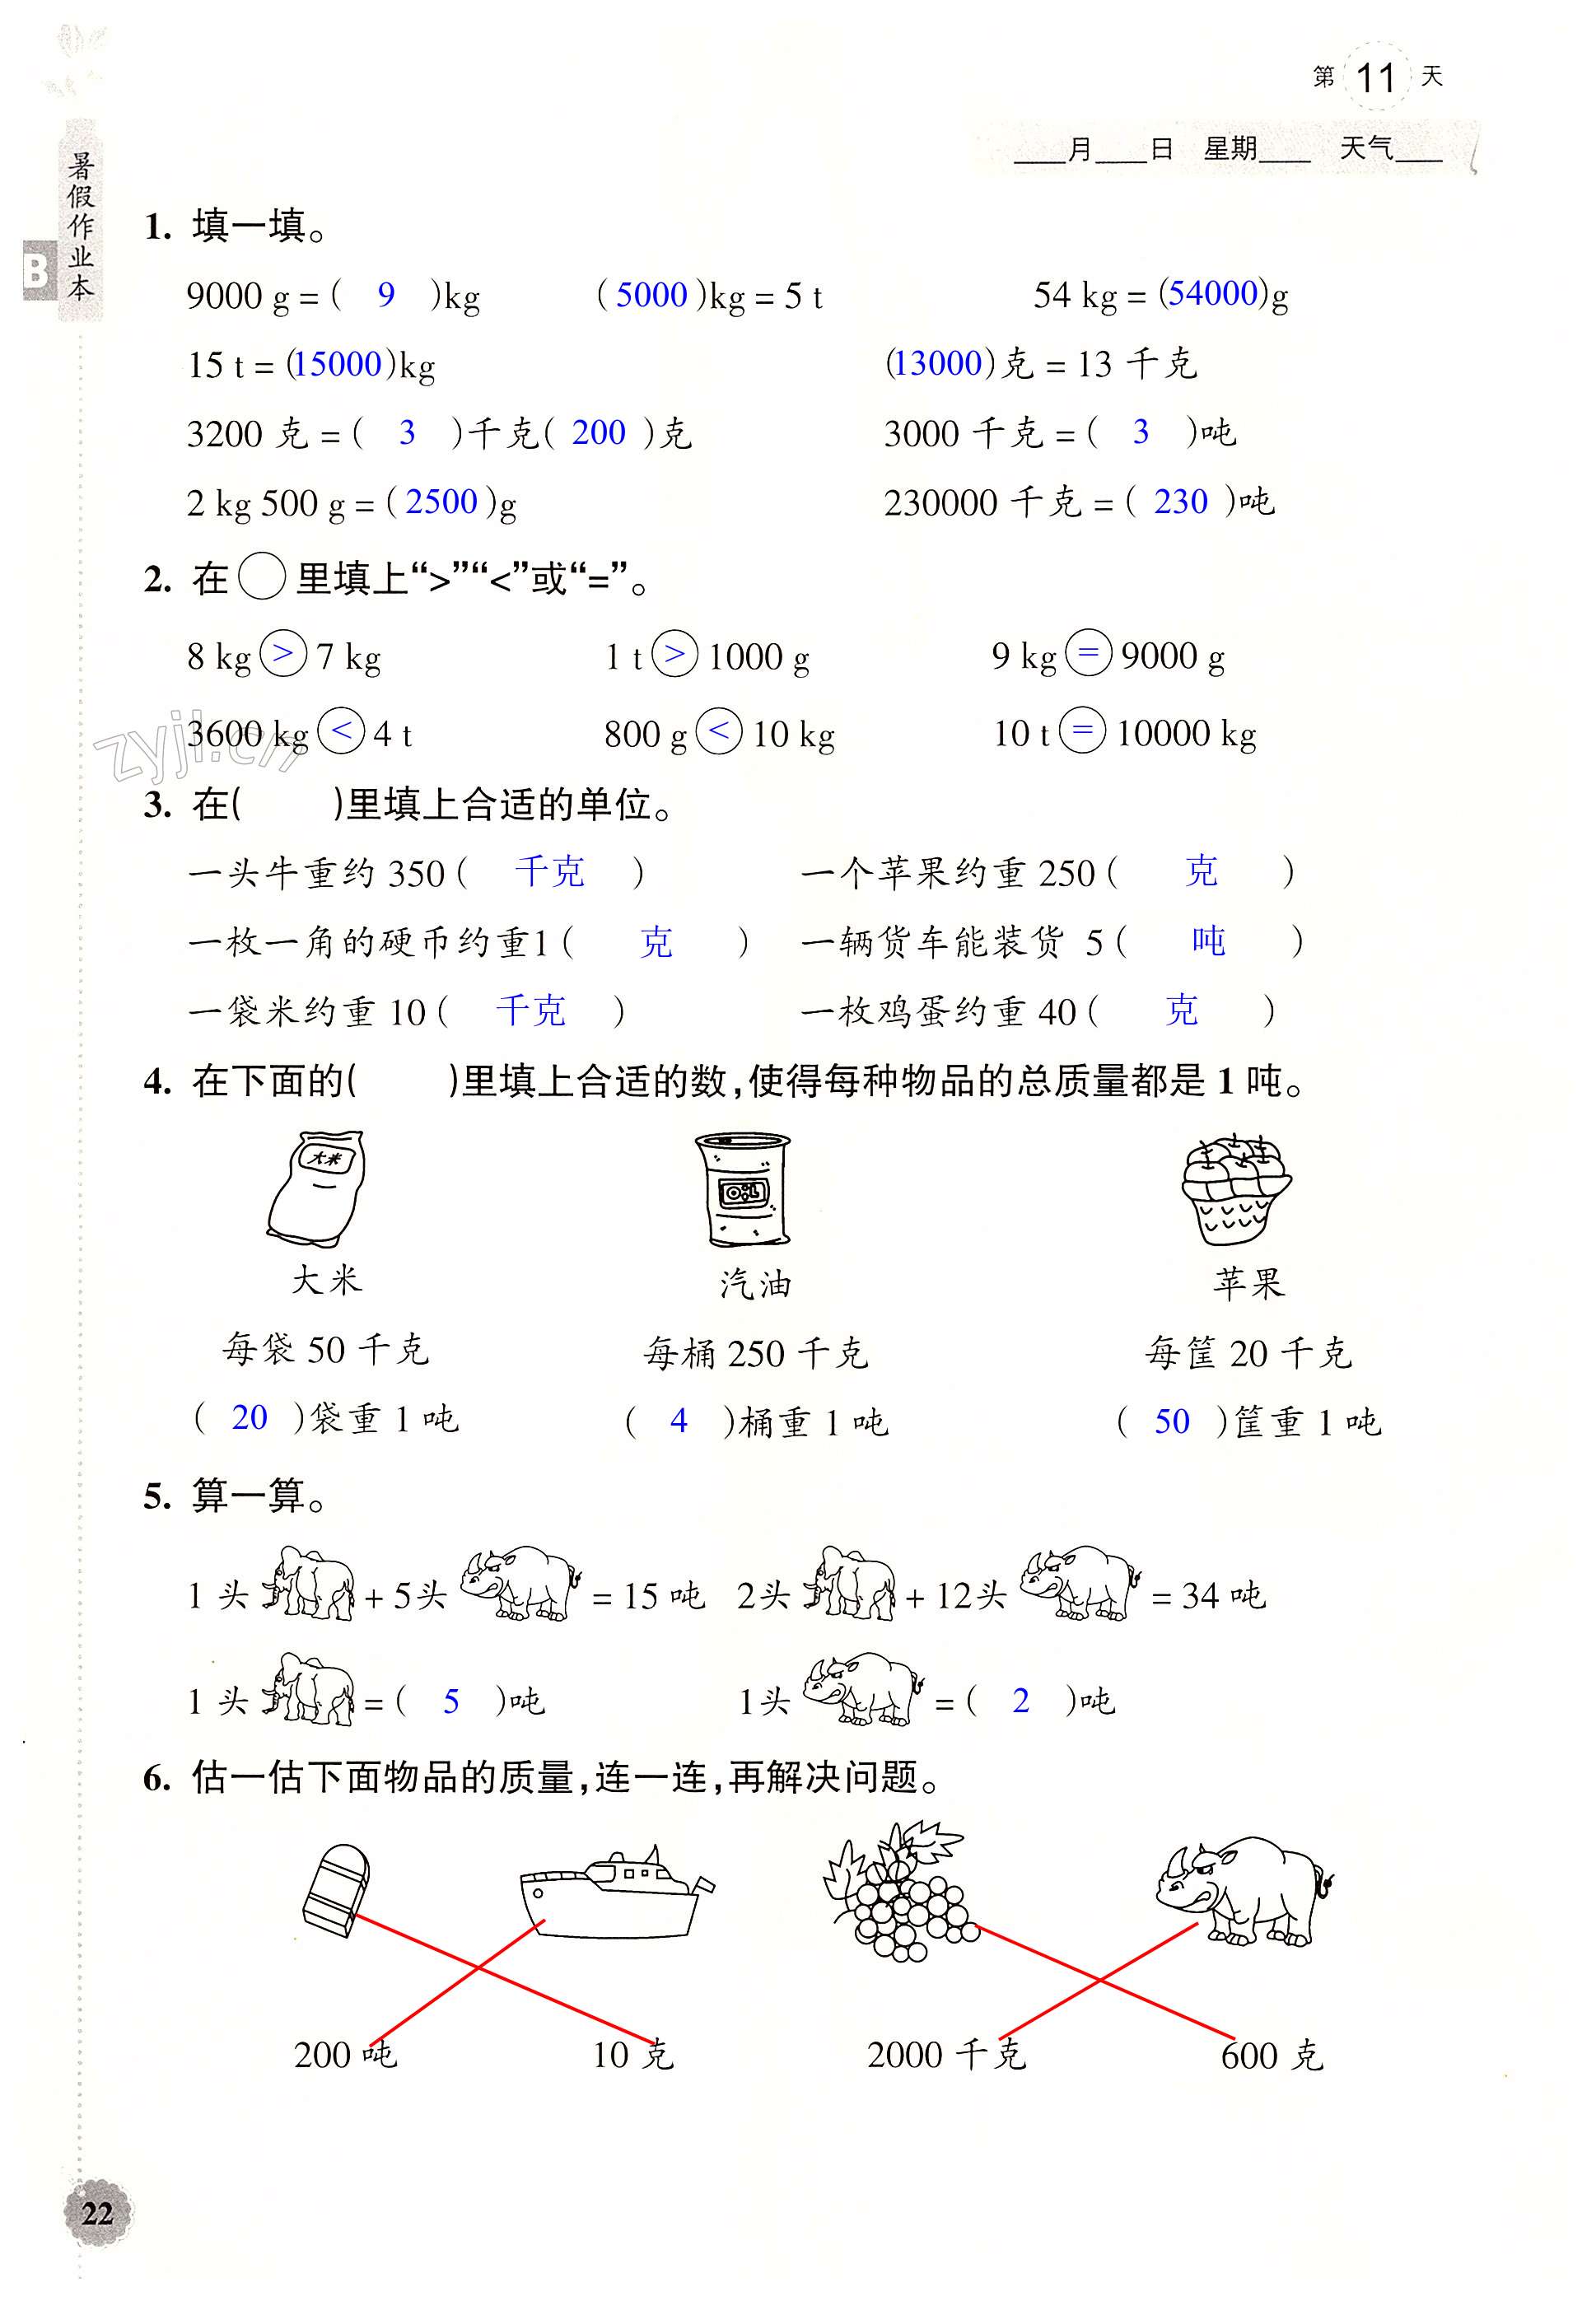 第 11 天
____月____日 星期____ 天气____
暑假作业本
B
1. 填一填。
9000 g = ( 9 )kg ( 5000 )kg = 5 t 54 kg = (54000)g
15 t = (15000)kg (13000)克 = 13 千克
3200 克 = ( 3 )千克( 200 )克 3000 千克 = ( 3 )吨
2 kg 500 g = ( 2500 )g 230000 千克 = ( 230 )吨
2. 在○里填上“>”“<”或“=”。
8 kg > 7 kg 1 t > 1000 g 9 kg = 9000 g
3600 kg < 4 t 800 g < 10 kg 10 t = 10000 kg
zyjl.cn
3. 在( )里填上合适的单位。
一头牛重约 350 ( 千克 ) 一个苹果约重 250 ( 克 )
一枚一角的硬币约重1 ( 克 ) 一辆货车能装货 5 ( 吨 )
一袋米约重 10 ( 千克 ) 一枚鸡蛋约重 40 ( 克 )
4. 在下面的( )里填上合适的数,使得每种物品的总质量都是 1 吨。
大米 OIL
大米 汽油 苹果
每袋 50 千克 每桶 250 千克 每筐 20 千克
( 20 )袋重 1 吨 ( 4 )桶重 1 吨 ( 50 )筐重 1 吨
5. 算一算。
1 头 + 5头 = 15 吨 2头 + 12头 = 34 吨
1 头 = ( 5 )吨 1头 = ( 2 )吨
6. 估一估下面物品的质量,连一连,再解决问题。
200 吨 10 克 2000 千克 600 克
22